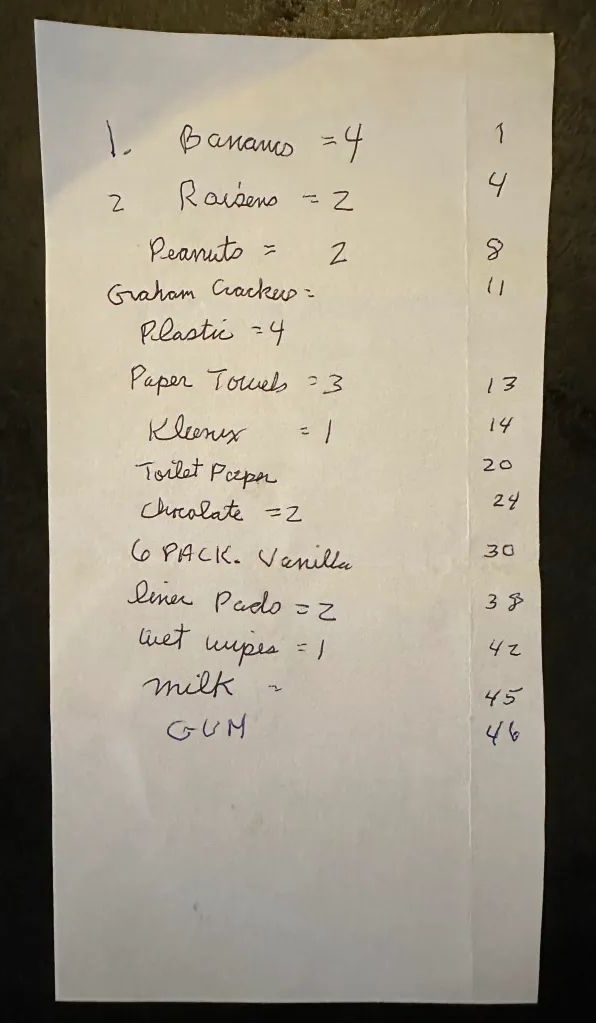 1. Bananas = 4 1
2 Raisens = 2 4
Peanuts = 2 8
Graham Crackers = 11
Plastic = 4
Paper Towels = 3 13
Kleenix = 1 14
Toilet Paper 20
Chocolate = 2 24
6 PACK. Vanilla 30
liner Pads = 2 38
wet wipes = 1 42
milk = 45
GUM 46